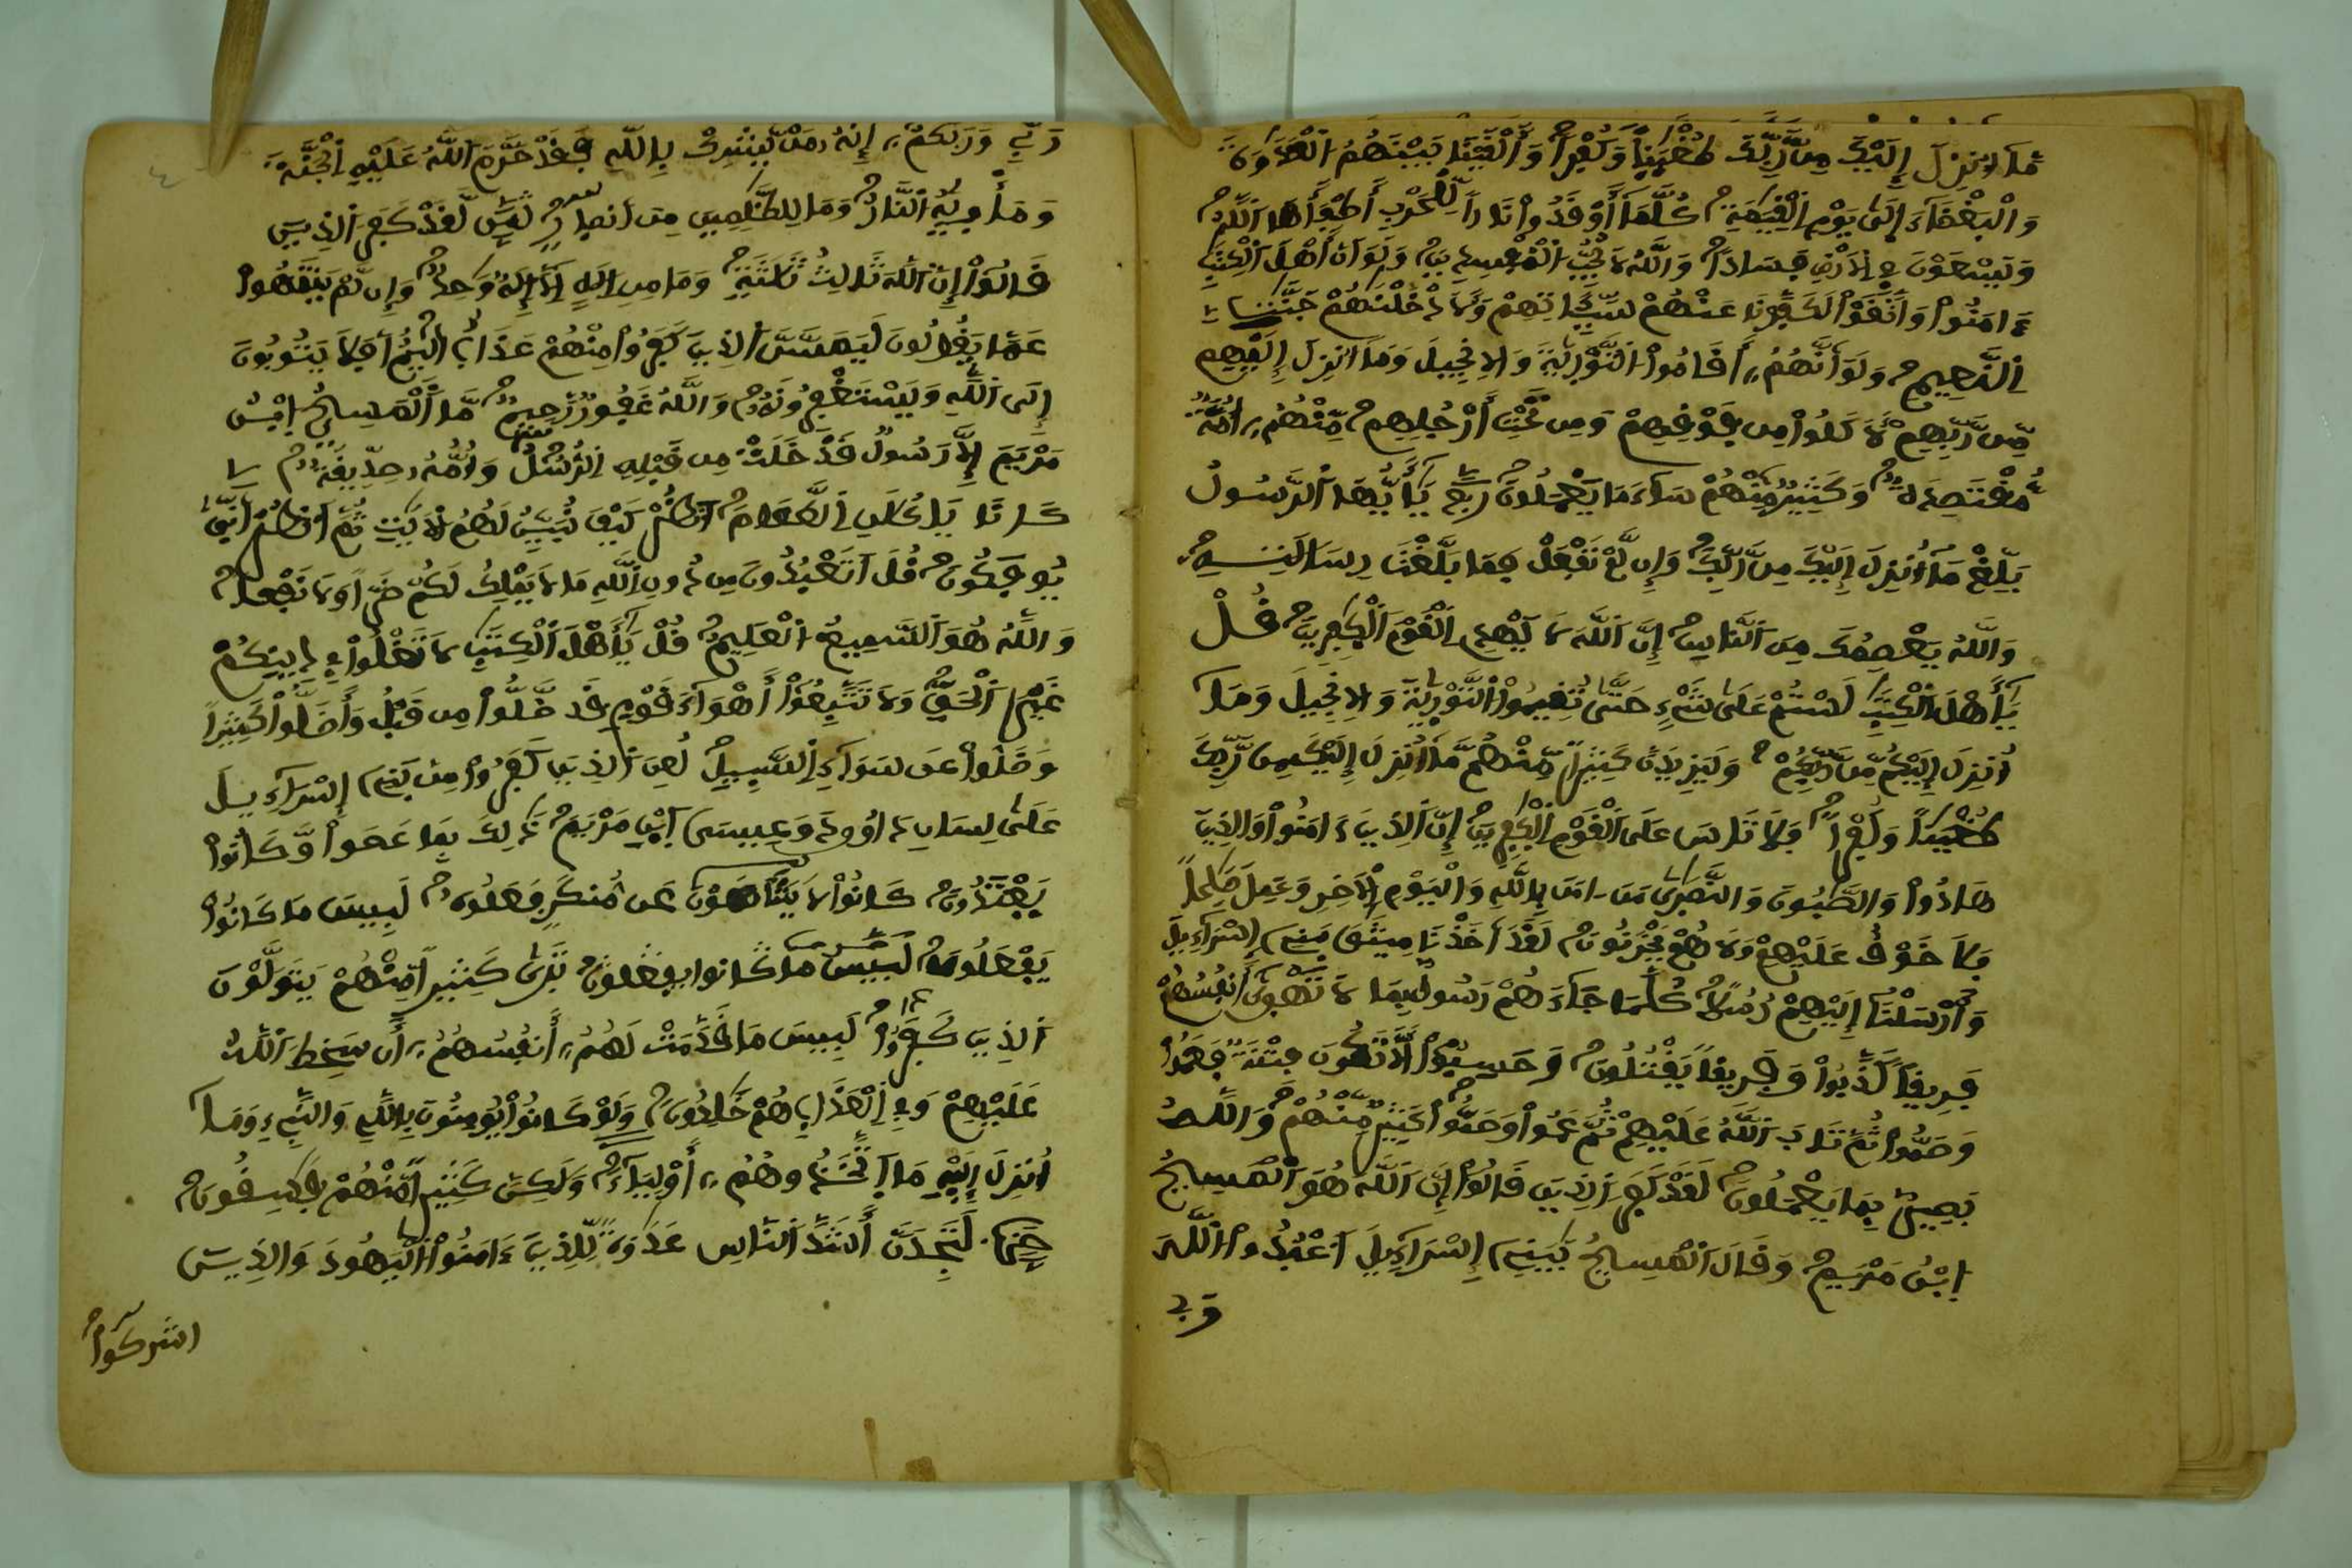 مَّا أُنزِلَ إِلَيْكَ مِن رَّبِّكَ طُغْيَٰناً وَكُفْراً وَأَلْقَيْنَا بَيْنَهُمُ اَلْعَدَٰوَةَ
وَالْبَغْضَآءَ إِلَىٰ يَوْمِ اِلْقِيَٰمَةِ كُلَّمَآ أَوْقَدُواْ نَاراً لِّلْحَرْبِ أَطْفَأَهَا اَللَّهُ
وَيَسْعَوْنَ فِي اِلَارْضِ فَسَاداً وَاللَّهُ لَا يُحِبُّ اُلْمُفْسِدِينَ وَلَوَ اَنَّ أَهْلَ اَلْكِتَٰبِ
ءَامَنُواْ وَاتَّقَوْاْ لَكَفَّرْنَا عَنْهُمْ سَيِّـَٔاتِهِمْ وَلَأَدْخَلْنَٰهُمْ جَنَّٰتِ
اِلنَّعِيمِ وَلَوَ اَنَّهُمُۥٓ أَقَامُواْ اُلتَّوْرَيٰةَ وَالِانجِيلَ وَمَآ أُنزِلَ إِلَيْهِم
مِّن رَّبِّهِمْ لَأَكَلُواْ مِن فَوْقِهِمْ وَمِن تَحْتِ أَرْجُلِهِم مِّنْهُمُۥٓ أُمَّةٌ
مُّقْتَصِدَةٌ وَكَثِيرٌ مِّنْهُمْ سَآءَ مَا يَعْمَلُونَ ربع يَٰٓأَيُّهَا اَلرَّسُولُ
بَلِّغْ مَآ أُنزِلَ إِلَيْكَ مِن رَّبِّكَ وَإِن لَّمْ تَفْعَلْ فَمَا بَلَّغْتَ رِسَالَٰتِهِ
وَاللَّهُ يَعْصِمُكَ مِنَ اَلنَّاسِ إِنَّ اَللَّهَ لَا يَهْدِي اِلْقَوْمَ اَلْكَٰفِرِينَ قُلْ
يَٰٓأَهْلَ اَلْكِتَٰبِ لَسْتُمْ عَلَىٰ شَيْءٍ حَتَّىٰ تُقِيمُواْ اُلتَّوْرَيٰةَ وَالِانجِيلَ وَمَآ
أُنزِلَ إِلَيْكُم مِّن رَّبِّكُمْ وَلَيَزِيدَنَّ كَثِيراً مِّنْهُم مَّآ أُنزِلَ إِلَيْكَ مِن رَّبِّكَ
طُغْيَٰناً وَكُفْراً فَلَا تَاسَ عَلَى اَلْقَوْمِ اِلْكَٰفِرِينَ إِنَّ اَلذِينَ ءَامَنُواْ وَالذِينَ
هَادُواْ وَالصَّٰبُونَ وَالنَّصَٰرَىٰ مَنَ ـامَنَ بِاللَّهِ وَالْيَوْمِ اِلَاخِرِ وَعَمِلَ صَٰلِحاً
فَلَا خَوْفٌ عَلَيْهِمْ وَلَا هُمْ يَحْزَنُونَ لَقَدَ اَخَذْنَا مِيثَٰقَ بَنِي إِسْرَآءِيلَ
وَأَرْسَلْنَآ إِلَيْهِمْ رُسُلاً كُلَّمَا جَآءَهُمْ رَسُولٌ بِمَا لَا تَهْوَىٰ أَنفُسُهُمْ
فَرِيقاً كَذَّبُواْ وَفَرِيقاً يَقْتُلُونَ وَحَسِبُوٓاْ أَلَّا تَكُونَ فِتْنَةٌ فَعَمُواْ
وَصَمُّواْ ثُمَّ تَابَ اَللَّهُ عَلَيْهِمْ ثُمَّ عَمُواْ وَصَمُّواْ كَثِيرٌ مِّنْهُمْ وَاللَّهُ
بَصِيرٌ بِمَا يَعْمَلُونَ لَقَدْ كَفَرَ اَلذِينَ قَالُوٓاْ إِنَّ اَللَّهَ هُوَ اَلْمَسِيحُ
اُبْنُ مَرْيَمَ وَقَالَ اَلْمَسِيحُ يَٰبَنِي إِسْرَآءِيلَ اَعْبُدُواْ اُللَّهَ
رَبِّي وَرَبَّكُمُۥٓ إِنَّهُۥ مَنْ يُّشْرِكْ بِاللَّهِ فَقَدْ حَرَّمَ اَللَّهُ عَلَيْهِ اِلْجَنَّةَ
وَمَأْوَيٰهُ اُلنَّارُ وَمَا لِلظَّٰلِمِينَ مِنَ اَنصَارٍ ثمن لَّقَدْ كَفَرَ اَلذِينَ
قَالُوٓاْ إِنَّ اَللَّهَ ثَالِثُ ثَلَٰثَةٍ وَمَا مِنِ اِلَٰهٍ اِلَّآ إِلَٰهٌ وَٰحِدٌ وَإِن لَّمْ يَنتَهُواْ
عَمَّا يَقُولُونَ لَيَمَسَّنَّ اَلذِينَ كَفَرُواْ مِنْهُمْ عَذَابٌ اَلِيمٌ أَفَلَا يَتُوبُونَ
إِلَى اَللَّهِ وَيَسْتَغْفِرُونَهُ وَاللَّهُ غَفُورٌ رَّحِيمٌ مَّا اَلْمَسِيحُ اُبْنُ
مَرْيَمَ إِلَّا رَسُولٌ قَدْ خَلَتْ مِن قَبْلِهِ اِلرُّسُلُ وَأُمُّهُۥ صِدِّيقَةٌ
كَانَا يَاكُلَٰنِ اِلطَّعَامَ اَنظُرْ كَيْفَ نُبَيِّنُ لَهُمُ اُلَايَٰتِ ثُمَّ اَنظُرَ اَنَّىٰ
يُوفَكُونَ قُلَ اَتَعْبُدُونَ مِن دُونِ اِللَّهِ مَا لَا يَمْلِكُ لَكُمْ ضَرّاً وَلَا نَفْعاً
وَاللَّهُ هُوَ اَلسَّمِيعُ اُلْعَلِيمُ قُلْ يَٰٓأَهْلَ اَلْكِتَٰبِ لَا تَغْلُواْ فِي دِينِكُمْ
غَيْرَ اَلْحَقِّ وَلَا تَتَّبِعُوٓاْ أَهْوَآءَ قَوْمٍ قَد ضَّلُّواْ مِن قَبْلُ وَأَضَلُّواْ كَثِيراً
وَضَلُّواْ عَن سَوَآءِ اِلسَّبِيلِ لُعِنَ اَلذِينَ كَفَرُواْ مِنۢ بَنِي إِسْرَآءِيلَ
عَلَىٰ لِسَانِ دَاوُۥدَ وَعِيسَى اَبْنِ مَرْيَمَ ذَٰلِكَ بِمَا عَصَواْ وَّكَانُواْ
يَعْتَدُونَ كَانُواْ لَا يَتَنَاهَوْنَ عَن مُّنكَرٍ فَعَلُوهُ لَبِيسَ مَا كَانُواْ
يَفْعَلُونَ لَبِيسَ ما كانوا يفعلون تَرَىٰ كَثِيراً مِّنْهُمْ يَتَوَلَّوْنَ
اَلذِينَ كَفَرُواْ لَبِيسَ مَا قَدَّمَتْ لَهُمُۥٓ أَنفُسُهُمُۥٓ أَن سَخِطَ اَللَّهُ
عَلَيْهِمْ وَفِي اِلْعَذَابِ هُمْ خَٰلِدُونَ وَلَوْ كَانُواْ يُومِنُونَ بِاللَّهِ وَالنَّبِيءِ وَمَآ
أُنزِلَ إِلَيْهِ مَا اَتَّخَذُوهُمُۥٓ أَوْلِيَآءَ وَلَٰكِنَّ كَثِيراً مِّنْهُمْ فَٰسِقُونَ
لَتَجِدَنَّ أَشَدَّ اَلنَّاسِ عَدَٰوَةً لِّلذِينَ ءَامَنُواْ اُلْيَهُودَ وَالذِينَ
اشركوا